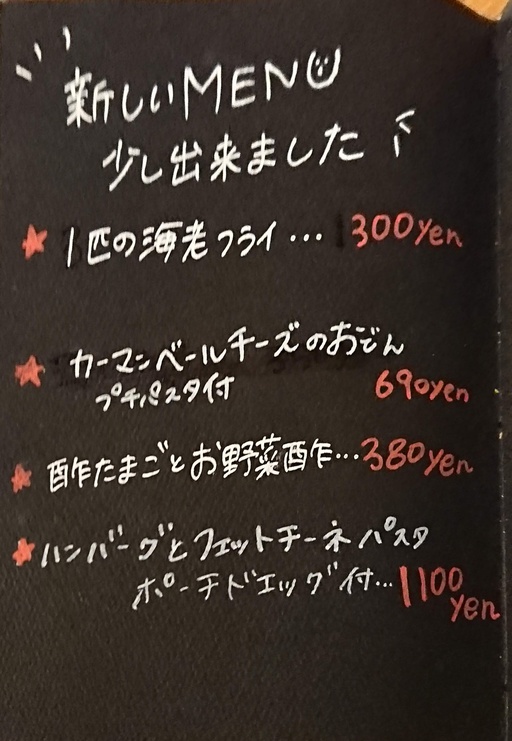 新しいMENU
少し出来ました
★ 1匹の海老フライ… 300yen
★ カーマンベールチーズのおでん
プチパスタ付 690yen
★ 酢たまごとお野菜酢…380yen
★ ハンバーグとフェットチーネパスタ
ポーチドエッグ付…1100
yen